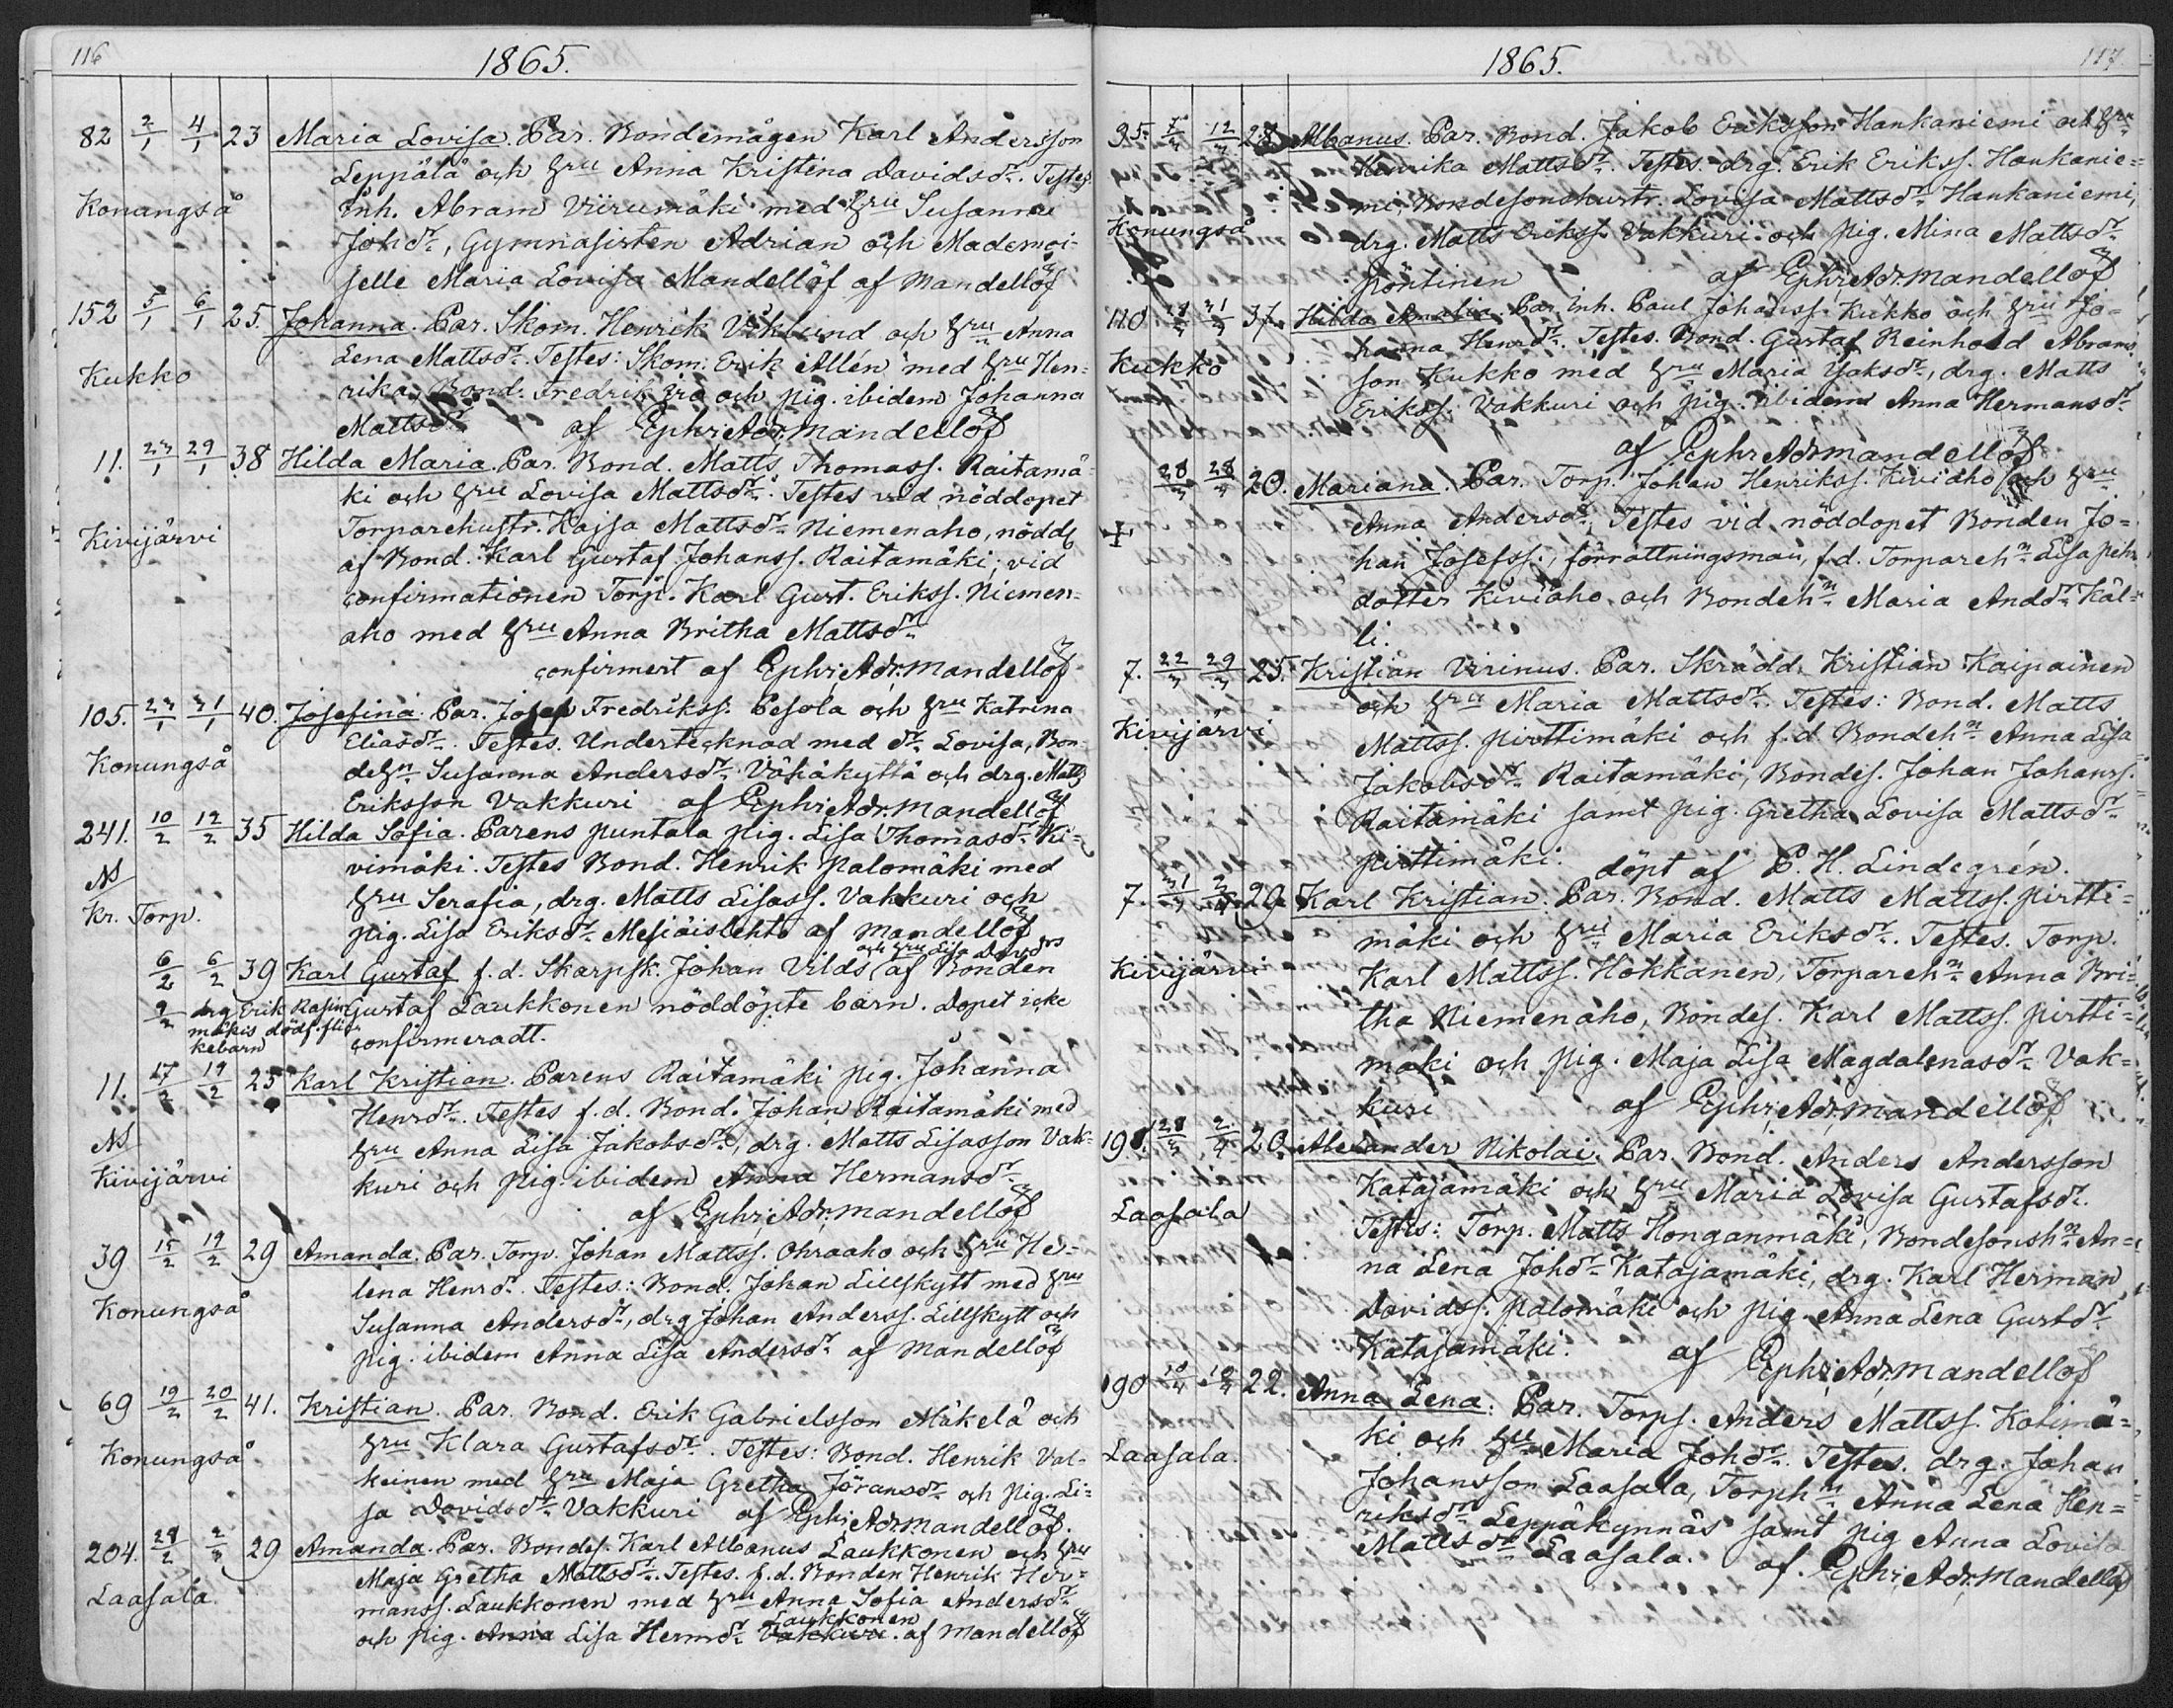 116
1865.
82 2/1 4/1 23 Maria Lovisa. Par. Bondemågen Karl Andersson
Leppälä och Hru Anna Kristina Davidsdr. Testes
Konungså
Inh. Abram Viirumäki med Hru Susanna
Johdr, Gymnasisten Adrian och Mademoi-
selle Maria Lovisa Mandellöf af Mandellöf
152 5/1 6/1 25. Johanna. Par. Skom. Henrik Viklund och Hru Anna
Lena Mattsdr. Testes: Skom. Erik Allén med Hru Hen-
Kukko
rika, Bond. Fredrik och pig. ibidem Johanna
Mattsdr af Ephr. Adr. Mandellöf
11. 23/1 29/1 38 Hilda Maria. Par. Bond. Matts Thomass. Raitamä-
ki och Hru Lovisa Mattsdr. Testes vid nöddopet
Kivijärvi
Torparehustr. Kajsa Mattsdr Niemenaho, nödd.
af Bond. Karl Gustaf Johanss. Raitamäki; vid
confirmationen Torp. Karl Gust. Erikss. Niemen-
aho med Hru Anna Britha Mattsdr
confirmert af Ephr. Adr. Mandellöf
105. 23/1 31/1 40. Josefina. Par. Josef Fredrikss. Pesola och Hru Katrina
Eliasdr. Testes. Undertecknad med dr. Lovisa, Bon-
Konungså
dehn Susanna Andersdr Vähäkyttä och drg. Matts
Eriksson Vakkuri af Ephr. Adr. Mandellöf
241. 10/2 12/2 35 Hilda Sofia. Parens Puntala pig. Lisa Thomasdr Ki-
vimäki. Testes Bond. Henrik Palomäki med
NB
Hru Serafia, drg. Matts Lisass. Vakkuri och
Kr. Torp.
pig. Lisa Eriksdr Mesiäislehto af Mandellöf
och Hru Lisa Davdrs
6/2 6/2 39 Karl Gustaf f.d. Skarpsk. Johan Vilds af Bonden
9/2 drg Erik Rasin- Gustaf Laukkonen nöddöpte barn. Dopet icke
mäkis dödf. flic-
kebarn confirmeradt.
11. 17/2 19/2 25 Karl Kristian. Parens Raitamäki pig. Johanna
Henrdr. Testes f.d. Bond. Johan Raitamäki med
NB
Hru Anna Lisa Jakobsdr, drg. Matts Lisasson Vak-
Kivijärvi
kuri och pig. ibidem Anna Hermansdr.
af Ephr. Adr. Mandellöf
39 15/2 19/2 29 Amanda. Par. Torp. Johan Mattss. Ohraaho och Hru He-
lena Henrdr. Testes: Bond. Johan Lillskytt med Hru
Konungså
Susanna Andersdr, drg Johan Anderss. Lillskytt och
pig. ibidem Anna Lisa Andersdr af Mandellöf
69 19/2 20/2 41. Kristian. Par. Bond. Erik Gabrielsson Mäkelä och
Hru Klara Gustafsdr. Testes: Bond. Henrik Val-
Konungså
keinen med Hru Maja Gretha Jöransdr och pig. Li-
sa Davidsdr Vakkuri af Ephr. Adr. Mandellöf.
204. 28/2 2/3 29 Amanda. Par. Bondes. Karl Albanus Laukkonen och Hru
Maja Gretha Mattsdr. Testes. f.d. Bonden Henrik Her-
Laasala
manss. Laukkonen med Hru Anna Sofia Andersdr
Laukkonen
och pig. Anna Lisa Hermdr Vakkuri. af Mandellöf
1865.
117.
95. 12/3 28 Albanus. Par. Bond. Jakob Eriksson Hankaniemi och Hru
Henrika Mattsdr. Testes. drg. Erik Erikss. Hankanie-
mi, Bondesonshustr. Lovisa Mattsdr Hankaniemi,
Konungså
drg. Matts Erikss. Vakkuri och pig. Mina Mattsdr
Pöntinen af Ephr. Adr. Mandellöf
110 31/3 37. Hilda Amalia. Par. Inh. Paul Johanss. Kukko och Hru Jo-
hanna Henrdr. Testes. Bond. Gustaf Reinhold Abrams-
Kukko
son Kukko med Hru Maria Jaksdr, drg. Matts
Erikss. Vakkuri och pig. ibidem Anna Hermansdr
af Ephr. Adr. Mandellöf
28/3 28/3 20. Mariana. Par. Torp. Johan Henrikss. Kiviaho och Hru
Anna Andersdr. Testes vid nöddopet Bonden Jo-
+
han Josefss., förrättningsman, f.d. Torpareh:n Lisa Pehrs-
dotter Kiviaho och Bondeh:n Maria Anddr Käl-
li.
7. 22/3 29/3 25. Kristian Virinus. Par. Skrädd. Kristian Kaipainen
och Hru Maria Mattsdr. Testes: Bond. Matts
Kivijärvi
Mattss. Pirttimäki och f.d Bondeh:n Anna Lisa
Jakobsdr Raitamäki, Bondes. Johan Johanss.
Raitamäki samt pig. Gretha Lovisa Mattsdr
Pirttimäki. döpt af P. H. Lindegrén.
7. 31/3 2/4 29 Karl Kristian. Par. Bond. Matts Mattss. Pirtti-
mäki och Hru Maria Eriksdr. Testes. Torp.
Kivijärvi
Karl Mattss. Hokkanen, Torpareh:n Anna Bri-
tha Niemenaho, Bondes. Karl Mattss. Pirtti-
mäki och pig. Maja Lisa Magdalenasdr Vak-
kuri af Ephr. Adr. Mandellöf
198. 28/3 2/4 20. Alexander Nikolai. Par. Bond. Anders Andersson
Katajamäki och Hru Maria Lovisa Gustafsdr.
Laasala
Testes: Torp. Matts Honganmäki, Bondesonsh:n An-
na Lena Johdr Katajamäki, drg. Karl Herman
Davidss. Palomäki och pig. Anna Lena Gustdr
Katajamäki. af Ephr. Adr. Mandellöf
190 22. Anna Lena. Par. Torps. Anders Mattss. Kotimä-
ki och Hru Maria Johdr. Testes. drg. Johan
Laasala.
Johansson Laasala, Torph:n Anna Lena Hen-
riksdr Leppäkynnäs samt pig Anna Lovisa
Mattsdr Laasala. af. Ephr. Adr. Mandellöf